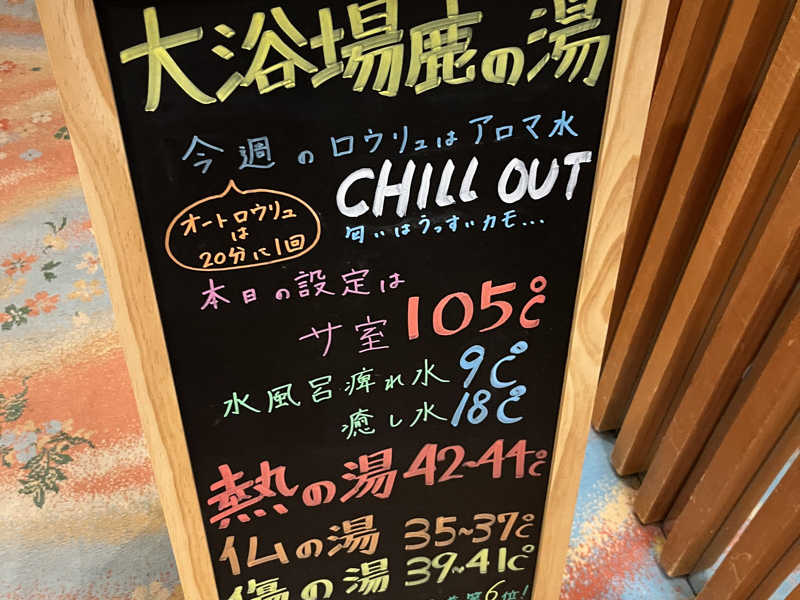 大浴場鹿の湯
今週のロウリュはアロマ水
CHILL OUT
匂いはうっすいカモ...
オートロウリュ
は
20分に1回
本日の設定は
サ室 105℃
水風呂 痺れ水 9℃
癒し水 18℃
熱の湯 42~44℃
仏の湯 35~37℃
傷の湯 39~41℃
第6位!